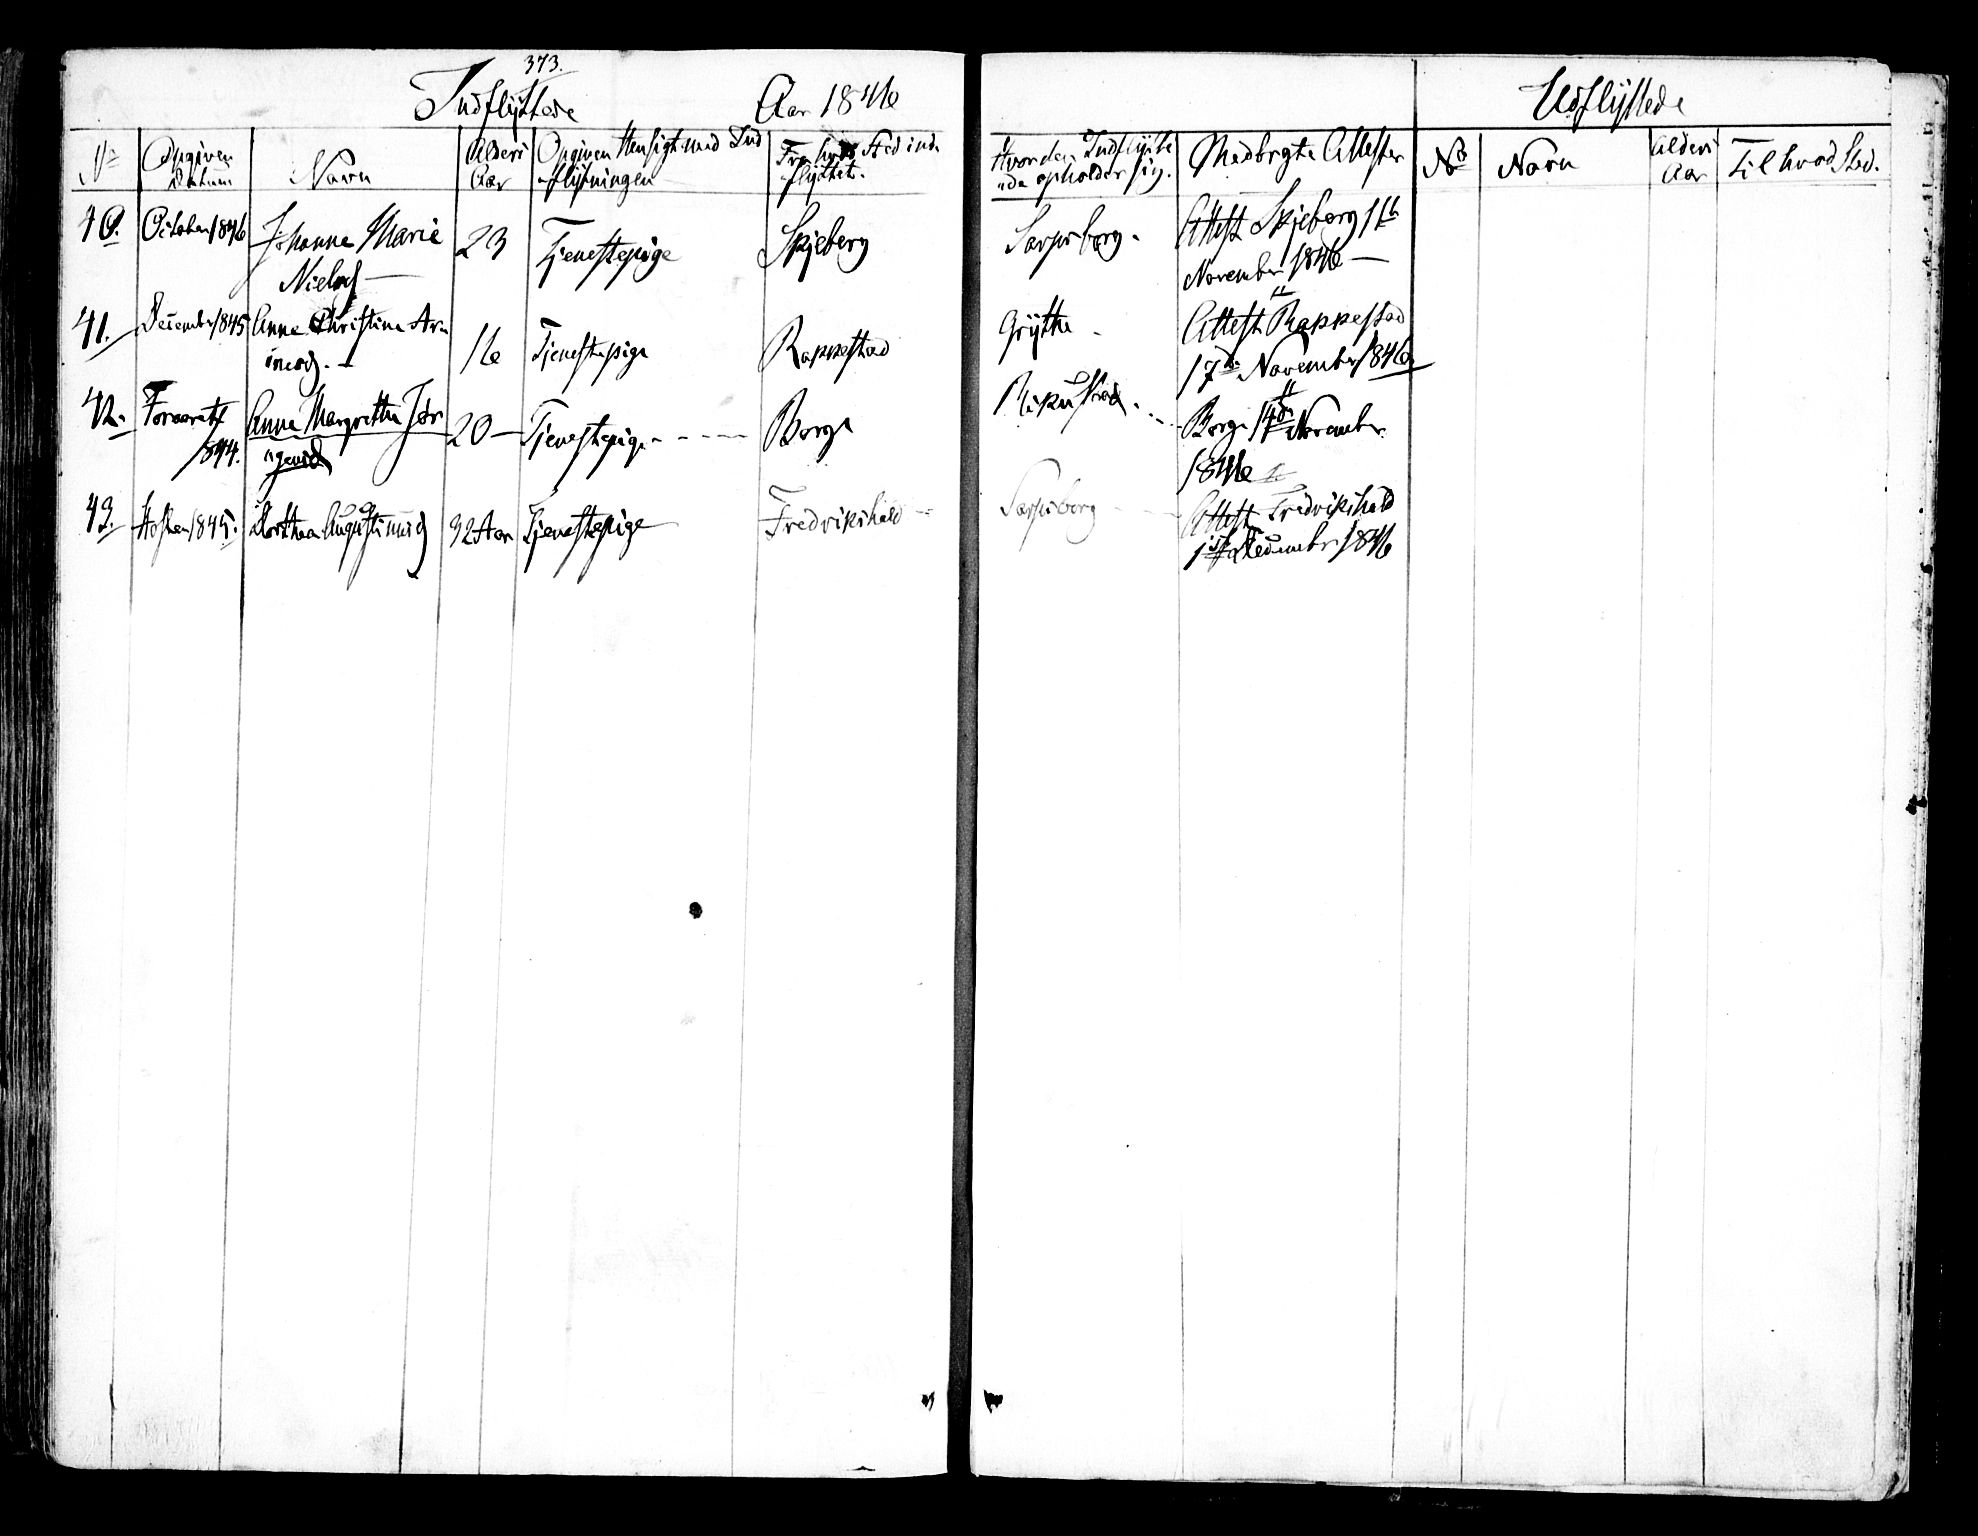 373.
Indflyttede Aar 1846
No Opgiven Datum Navn Alders Aar Opgiven Hensigt med Ind flytningen Fra hvad Sted ind flyttet.
40. October 1846 Johanne Marie Nielsd 23 Tjenestepige Skjeberg
41. December 1845 Anne Christine Ar 16 Tjenestepige Rakkestad
42. Foraaret 1844. Anna Margrethe Jør genśd 20 Tjenestepige Borge
43. Høsten 1845. Dorthea Augustinusd 32 Aar Tjenestepige Fredrikshald
Udflyttede
Hvor den Indflytte de opholder sig. Medbragte Attester No Navn Alders Aar Til hvad Sted.
Sarpsborg. Attest Skjeberg 1ste
November 1846
Grytte Attest Rakkestad
17de November 1846
Borge 14de November
1846
Sarpsborg Attest Fredrikshald
1ste December 1846